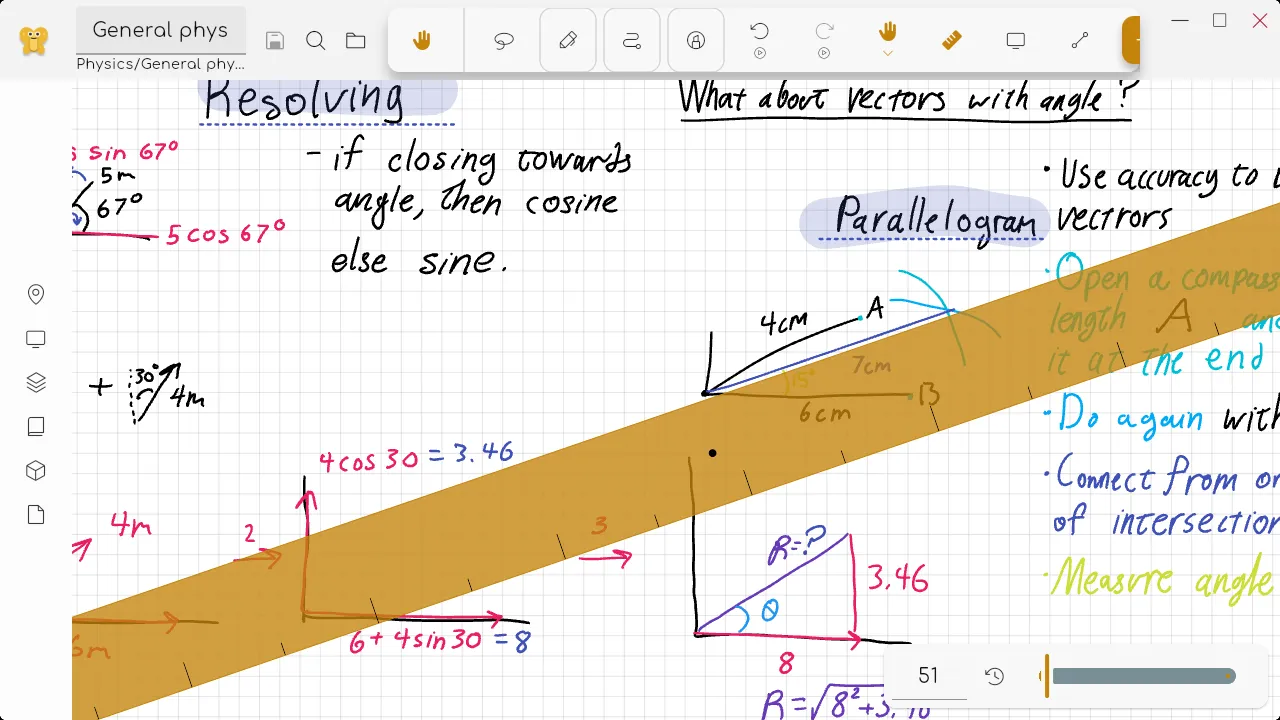 General phys
Physics/General phy...
Resolving
s sin 67°
5m
67°
5 cos 67°
- if closing towards
angle, then cosine
else sine.
+ 30° 4m
4cos 30 = 3.46
4m
2
3
6m
6 + 4 sin 30 = 8
What about vectors with angle?
Parallelogram
4cm A
7cm
15°
6cm B
R=?
θ
3.46
8
R = √8²+3.46
• Use accuracy to
vectrors
• Open a compass
length A and
it at the end
• Do again with
• Connect from or
of intersection
• Measure angle
51